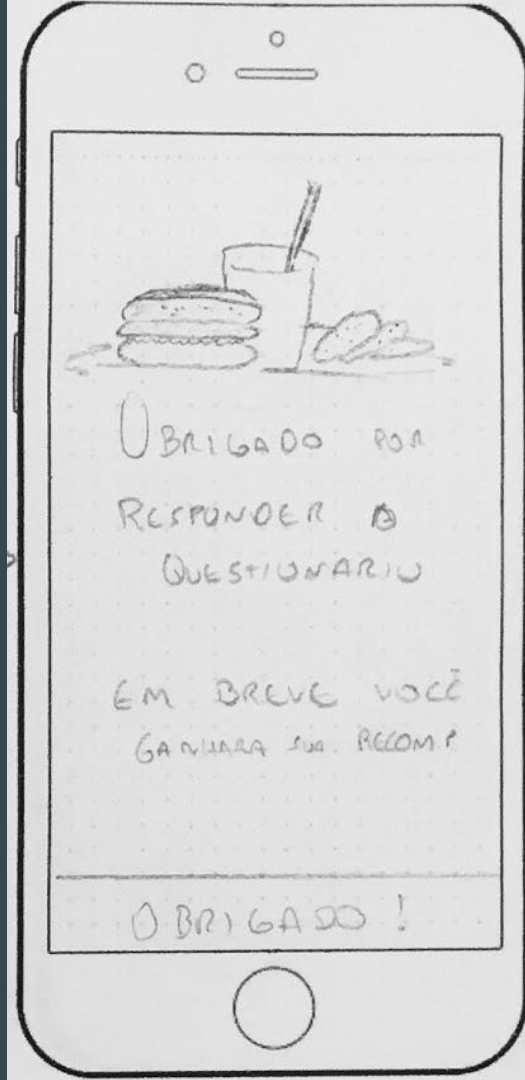 OBRIGADO POR
RESPONDER O
QUESTIONARIO
EM BREVE VOCÊ
GANHARA SUA RECOMP
OBRIGADO!